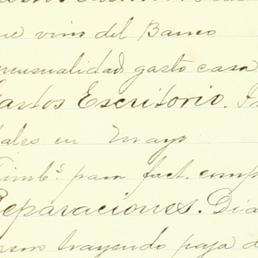 ue vino del Banco
mensualidad, gasto casa
Gastos Escritorio.
ales en Mayo
Timbs. para fact. comp
Reparaciones. Dia
trayendo paja d